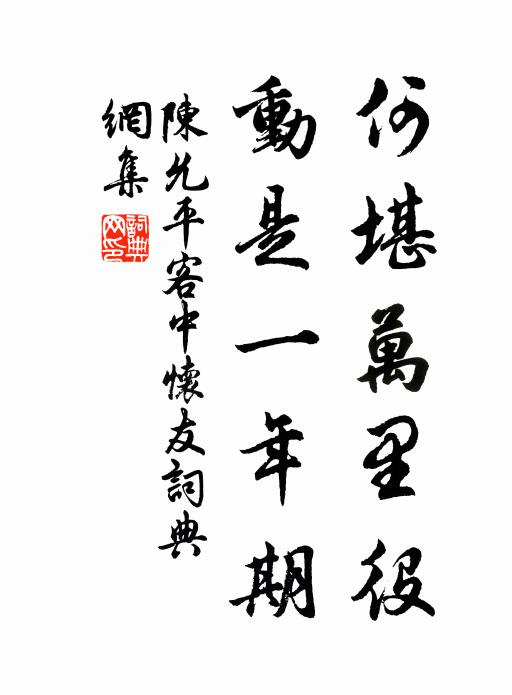 何堪萬里役
動是一年期
陳允平客中懷友詞典
網集
詞典
网印